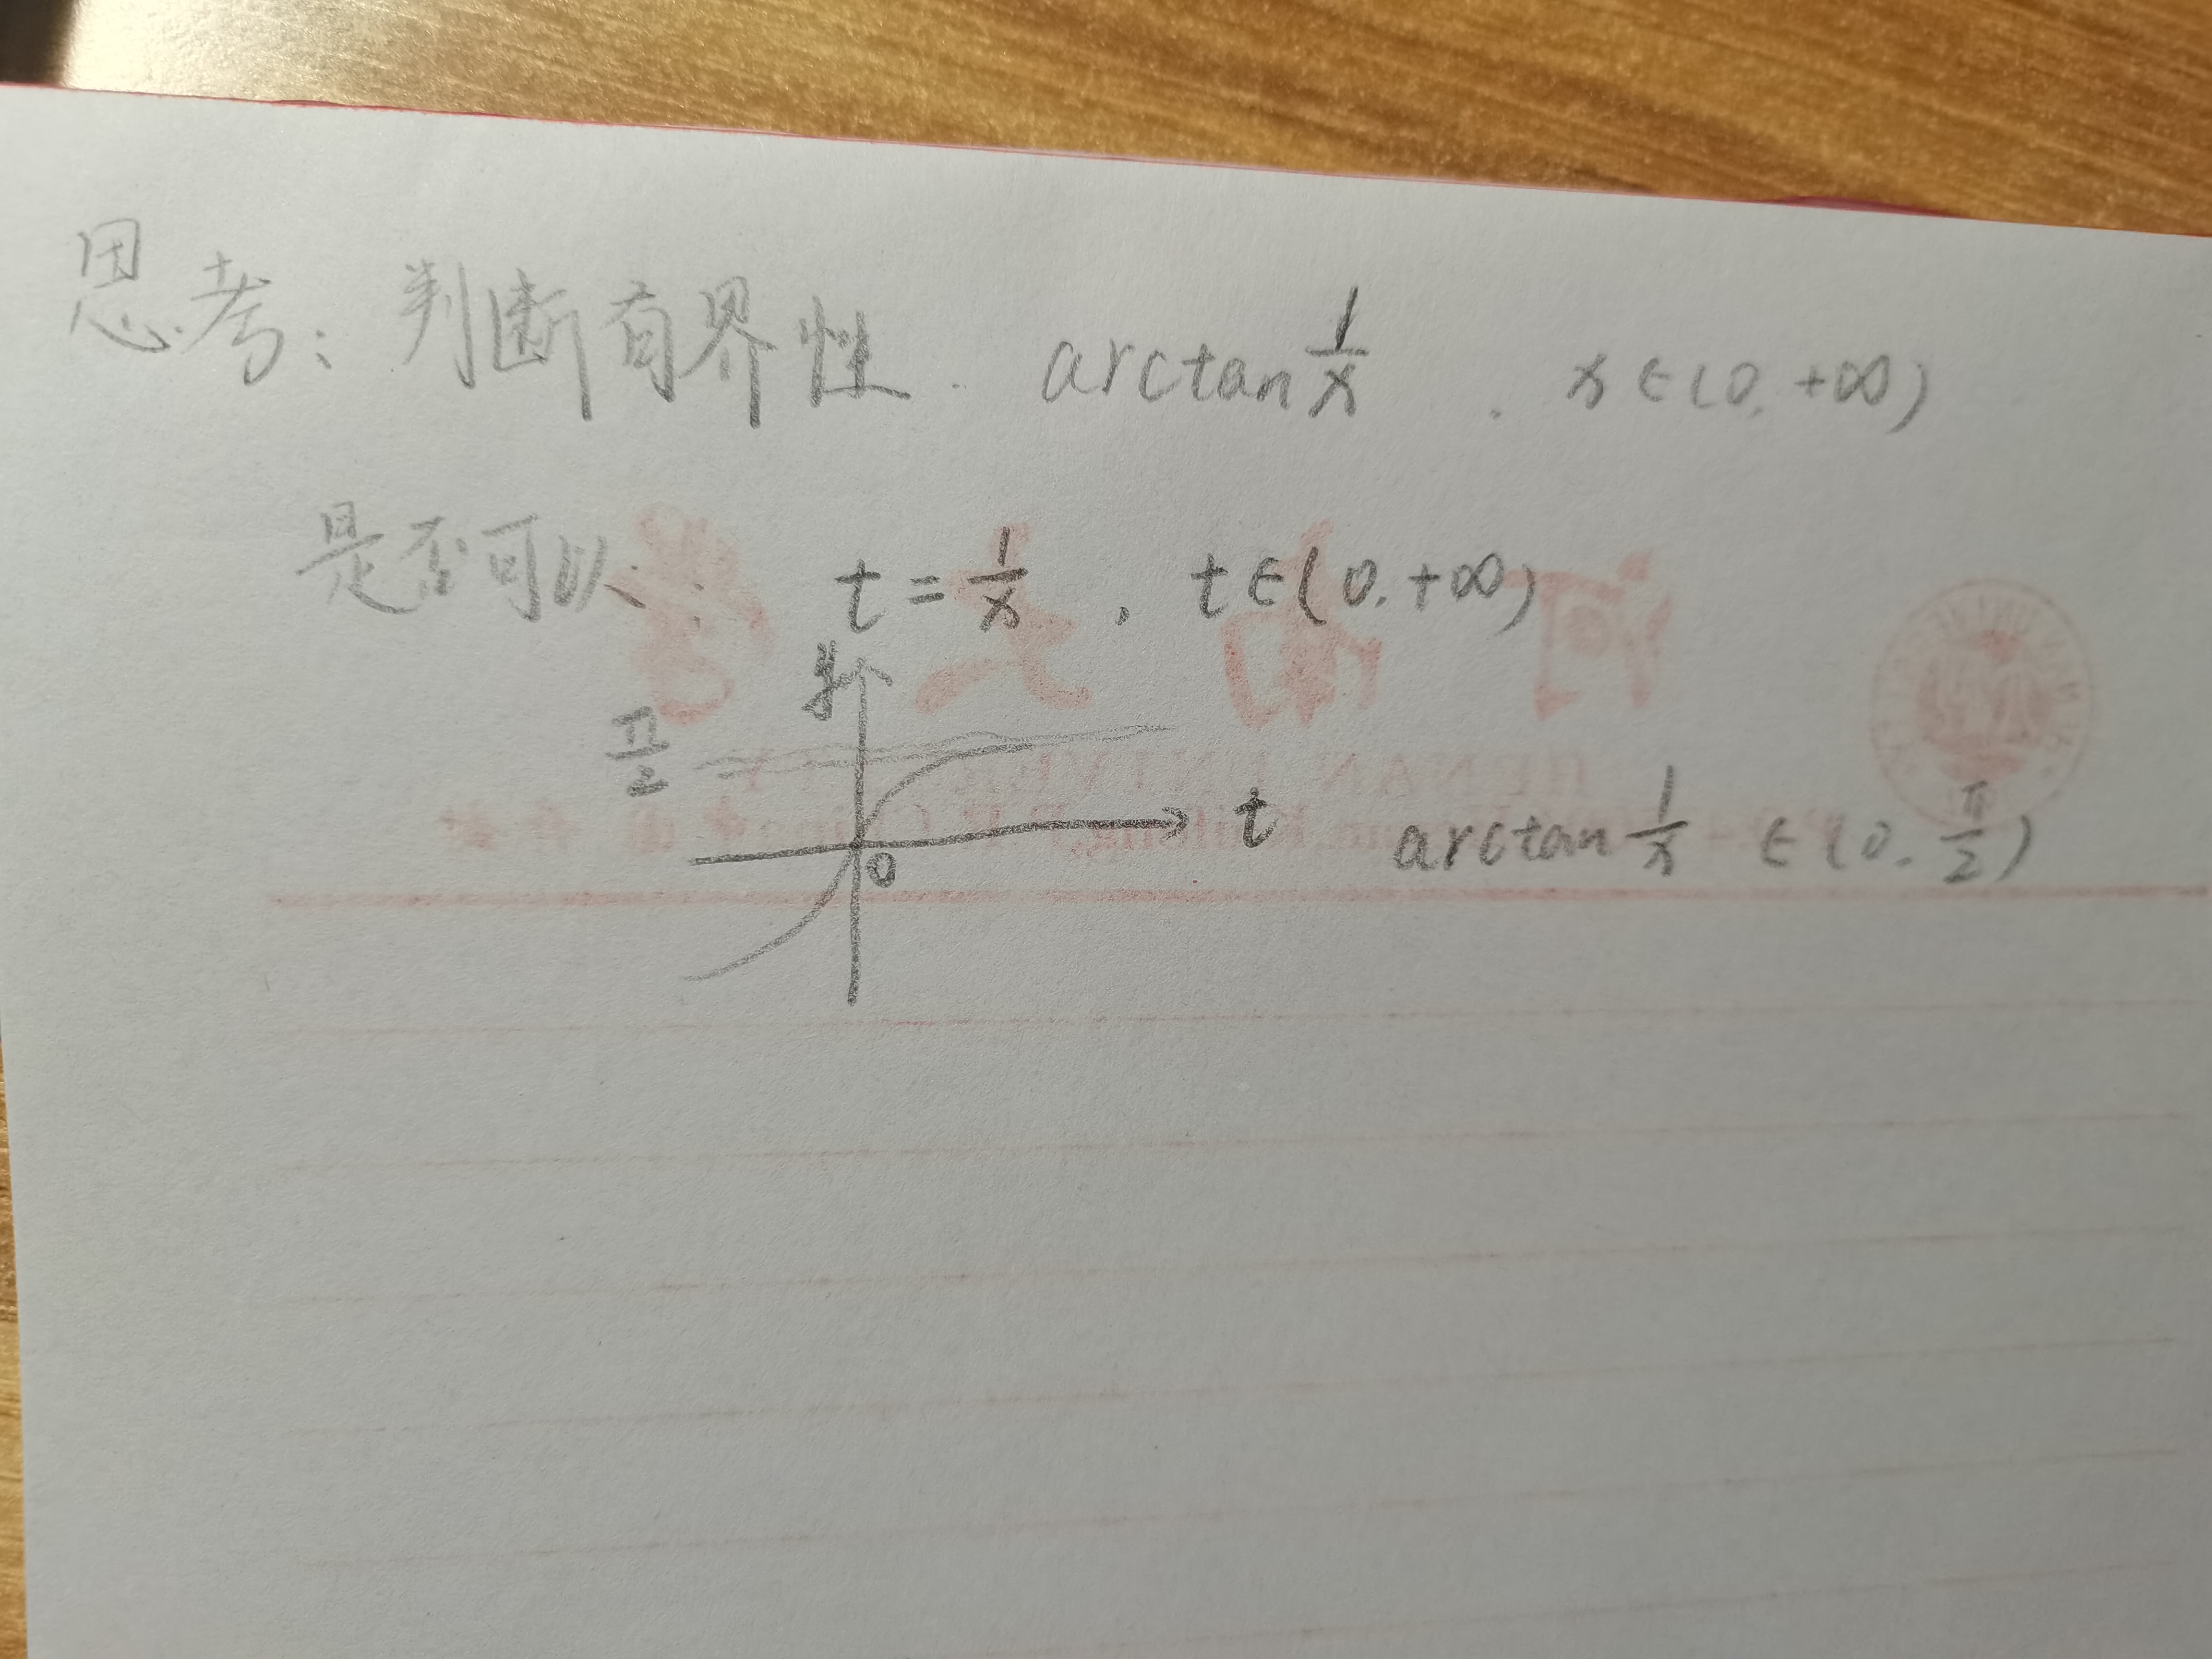 思考：判断有界性. arctan 1/x . x∈(0, +∞)
是否可以： t = 1/x , t∈(0, +∞)
y
π/2
t
0
arctan 1/x ∈(0, π/2)